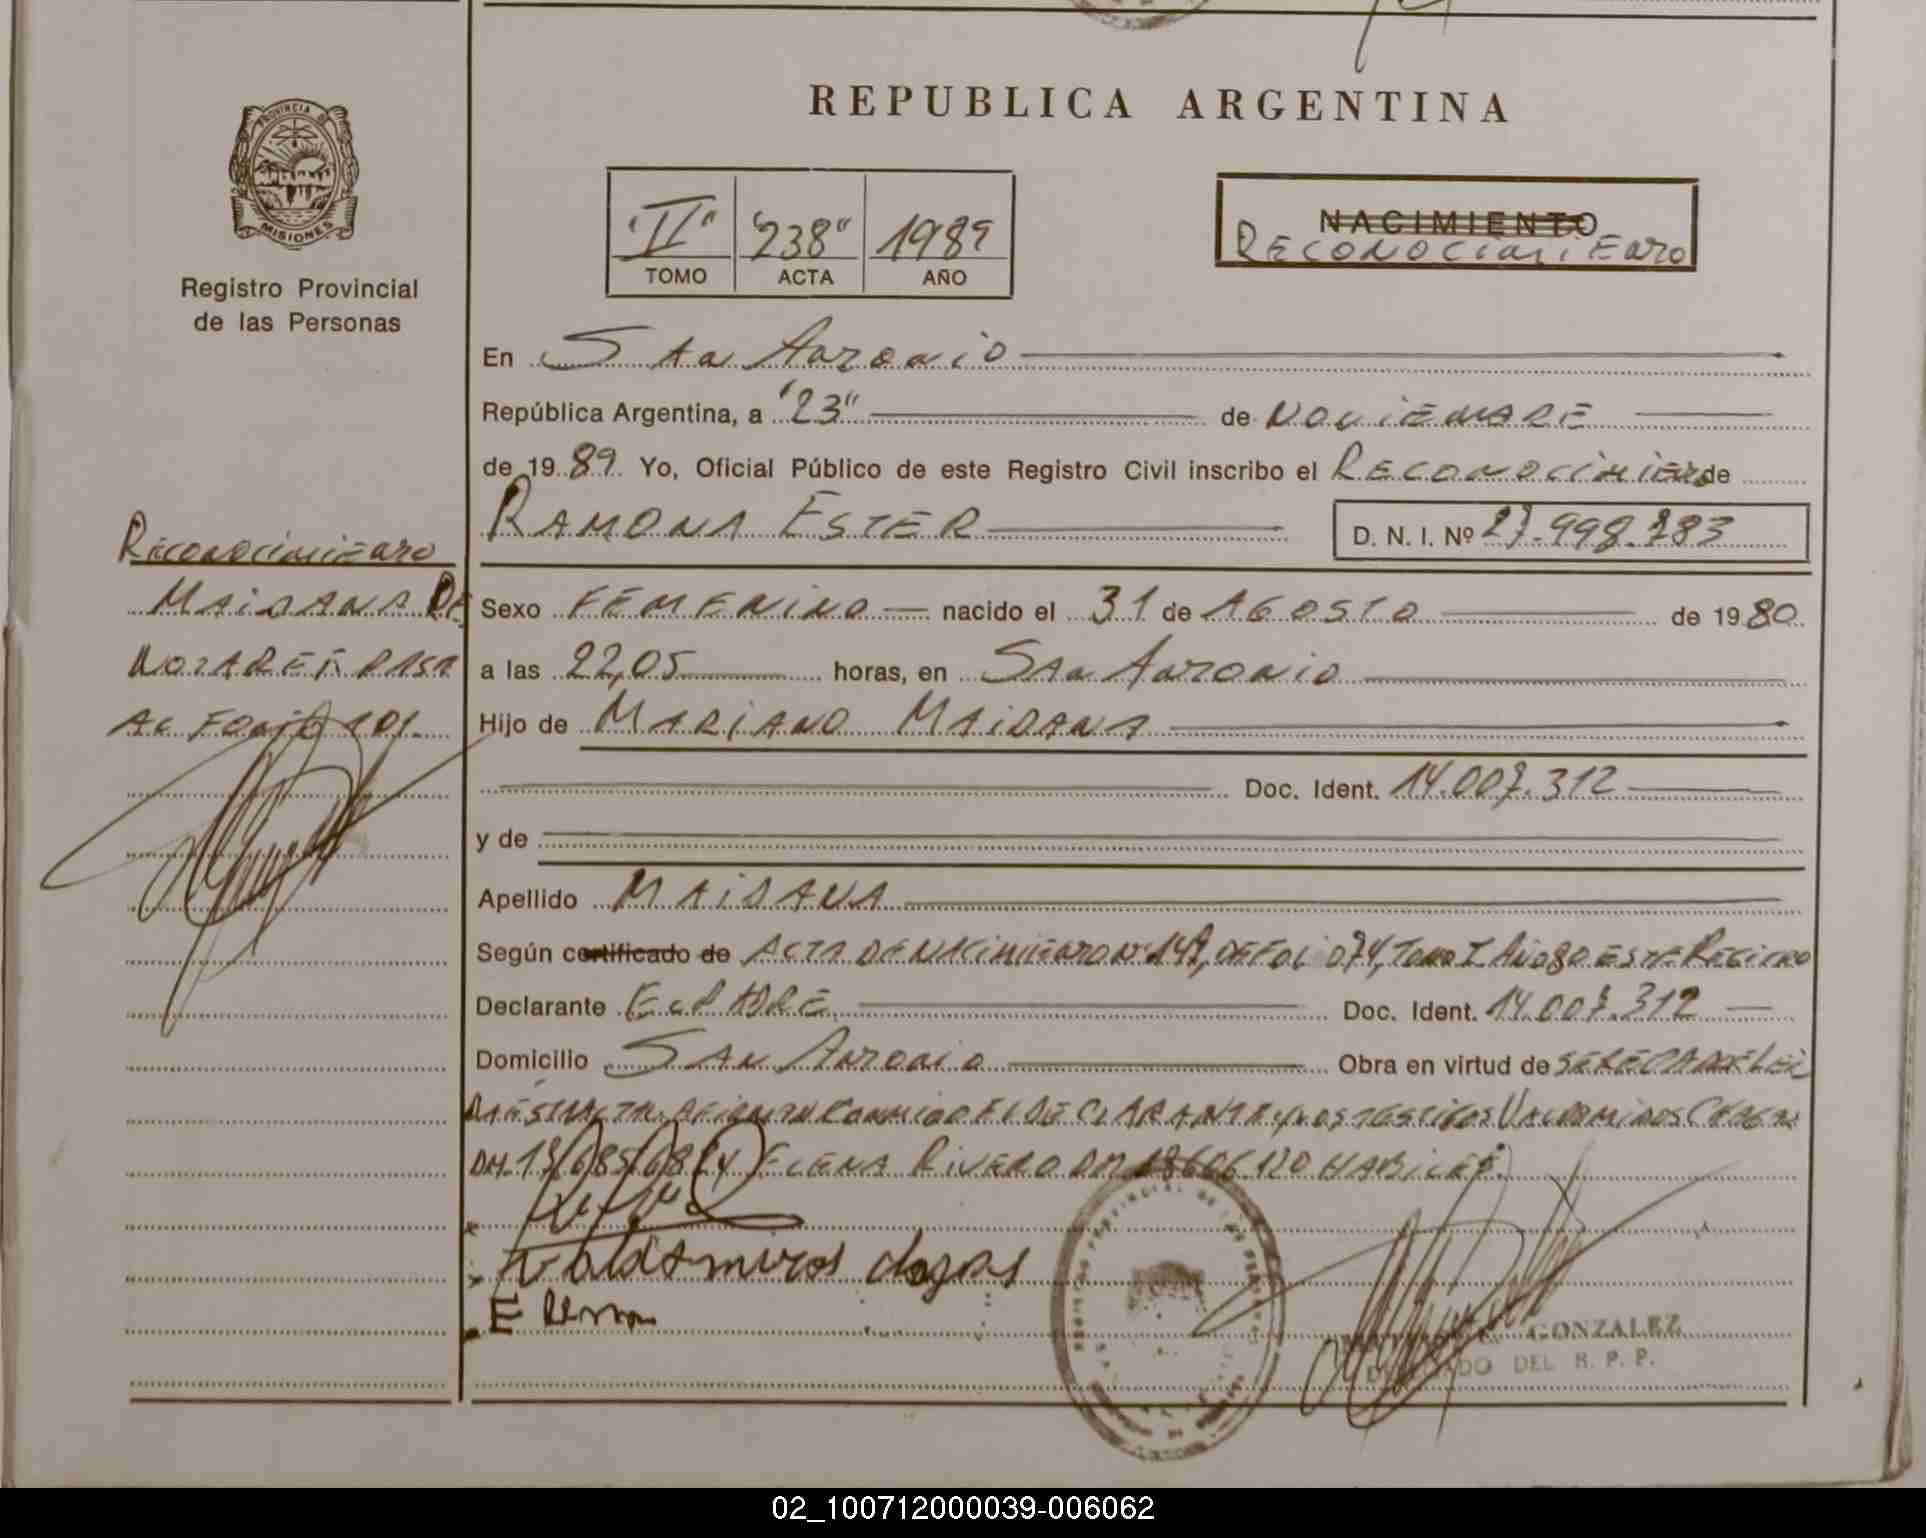 REPUBLICA ARGENTINA
PROVINCIA DE
MISIONES
Registro Provincial
de las Personas
"II" "238" 1989
TOMO ACTA AÑO
NACIMIENTO
RECONOCIMIENTO
En San Antonio
República Argentina, a "23" de NOVIEMBRE
de 1989 Yo, Oficial Público de este Registro Civil inscribo el RECONOCIMIENTO de
RAMONA ESTER D. N. I. Nº 27.998.783
RECONOCIMIENTO
MAIDANA DE
AL FOLIO 101.
Sexo FEMENINO nacido el 31 de AGOSTO de 1980
a las 22,05 horas, en San Antonio
Hijo de MARIANO MAIDANA
Doc. Ident. 14.007.312
y de
Apellido MAIDANA
Según certificado de ACTA DE NACIMIENTO Nº 147, DE FOLIO 074, TOMO I AÑO 80 ESTE REGISTRO
Declarante EL PADRE Doc. Ident. 14.007.312
Domicilio SAN ANTONIO Obra en virtud de SER EL PADRE LEI
DA ESTA ACTA, FIRMAN CONMIGO EL DECLARANTE y LOS TESTIGOS VALDOMIROS
ELENA RIVERO DNI 18606120 HABILES.
Valdomiros chagas
Elena
GONZALEZ
DELEGADO DEL R. P. P.
02_100712000039-006062